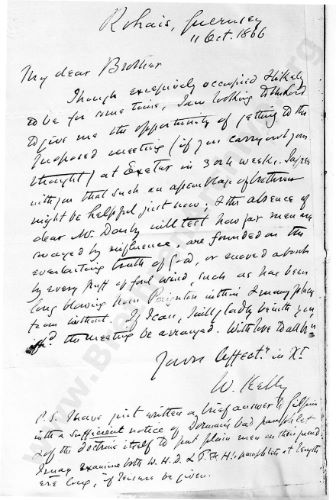 Rohais, Guernsey
11 Oct. 1866
My dear Brother
Though excessively occupied & likely
to be for some time, I am looking to the Lord
to give me the opportunity of getting to the
proposed meeting (if you carry out your
thought) at Exeter in 3 or 4 weeks. I agree
with you that such an assemblage of brethren
might be helpful just now; & the absence of
dear Mr. Darby will test how far men are
swayed by influence, are founded on the
everlasting truth of God, or moved about
by every puff of foul wind, such as has been
long blowing from within & many places
from without. If I can, I will gladly be with you
if the meeting be arranged. With love to all
Yours affect.ly in Xt
W. Kelly
P.S. I have just written a brief answer to
with a sufficient notice of Dorman's bad pamphlet
& of the doctrine itself to put plain men on their guard.
I may examine both W.H.D. & P.F.H.'s pamphlets at length
ere long, if leisure be given.